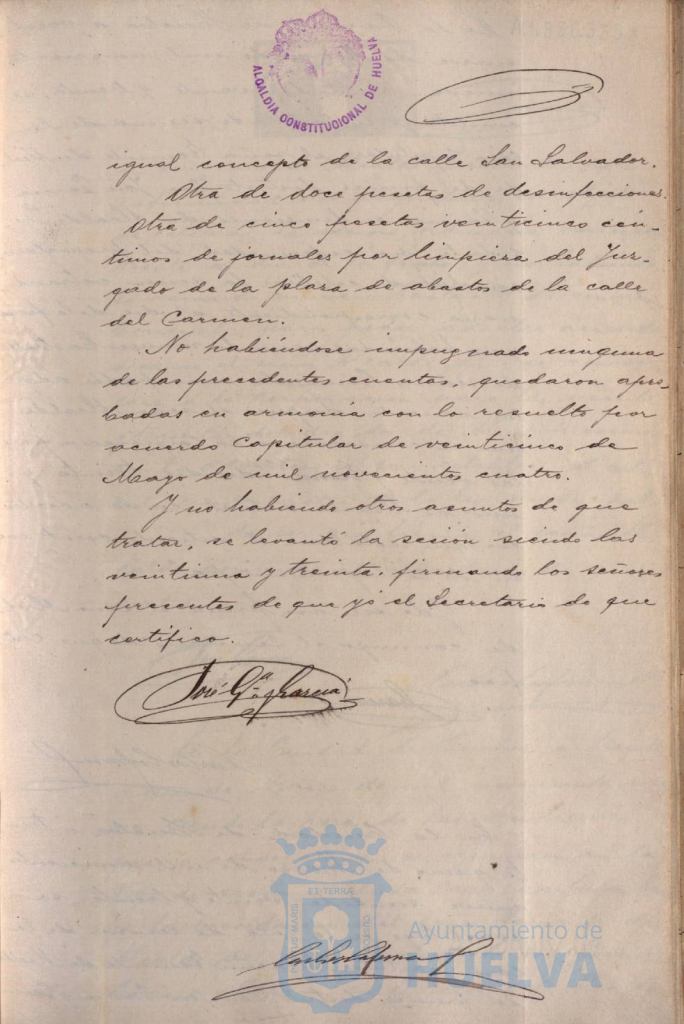 ALCALDIA CONSTITUCIONAL DE HUELVA
igual concepto de la calle San Salvador.
Otra de doce pesetas de desinfecciones.
Otra de cinco pesetas veinticinco cén-
timos de jornales por limpieza del Juz-
gado de la plaza de abastos de la calle
del Carmen.
No habiéndose impugnado ninguna
de las precedentes cuentas, quedaron apro-
badas en armonía con lo resuelto por
acuerdo Capitular de veinticinco de
Mayo de mil novecientos cuatro.
Y no habiendo otros asuntos de que
tratar, se levantó la sesión siendo las
veintiuna y treinta, firmando los señores
presentes de que yó el Secretario de que
certifico.
José Gª y García
ET TERRÆ
Ayuntamiento de
HUELVA